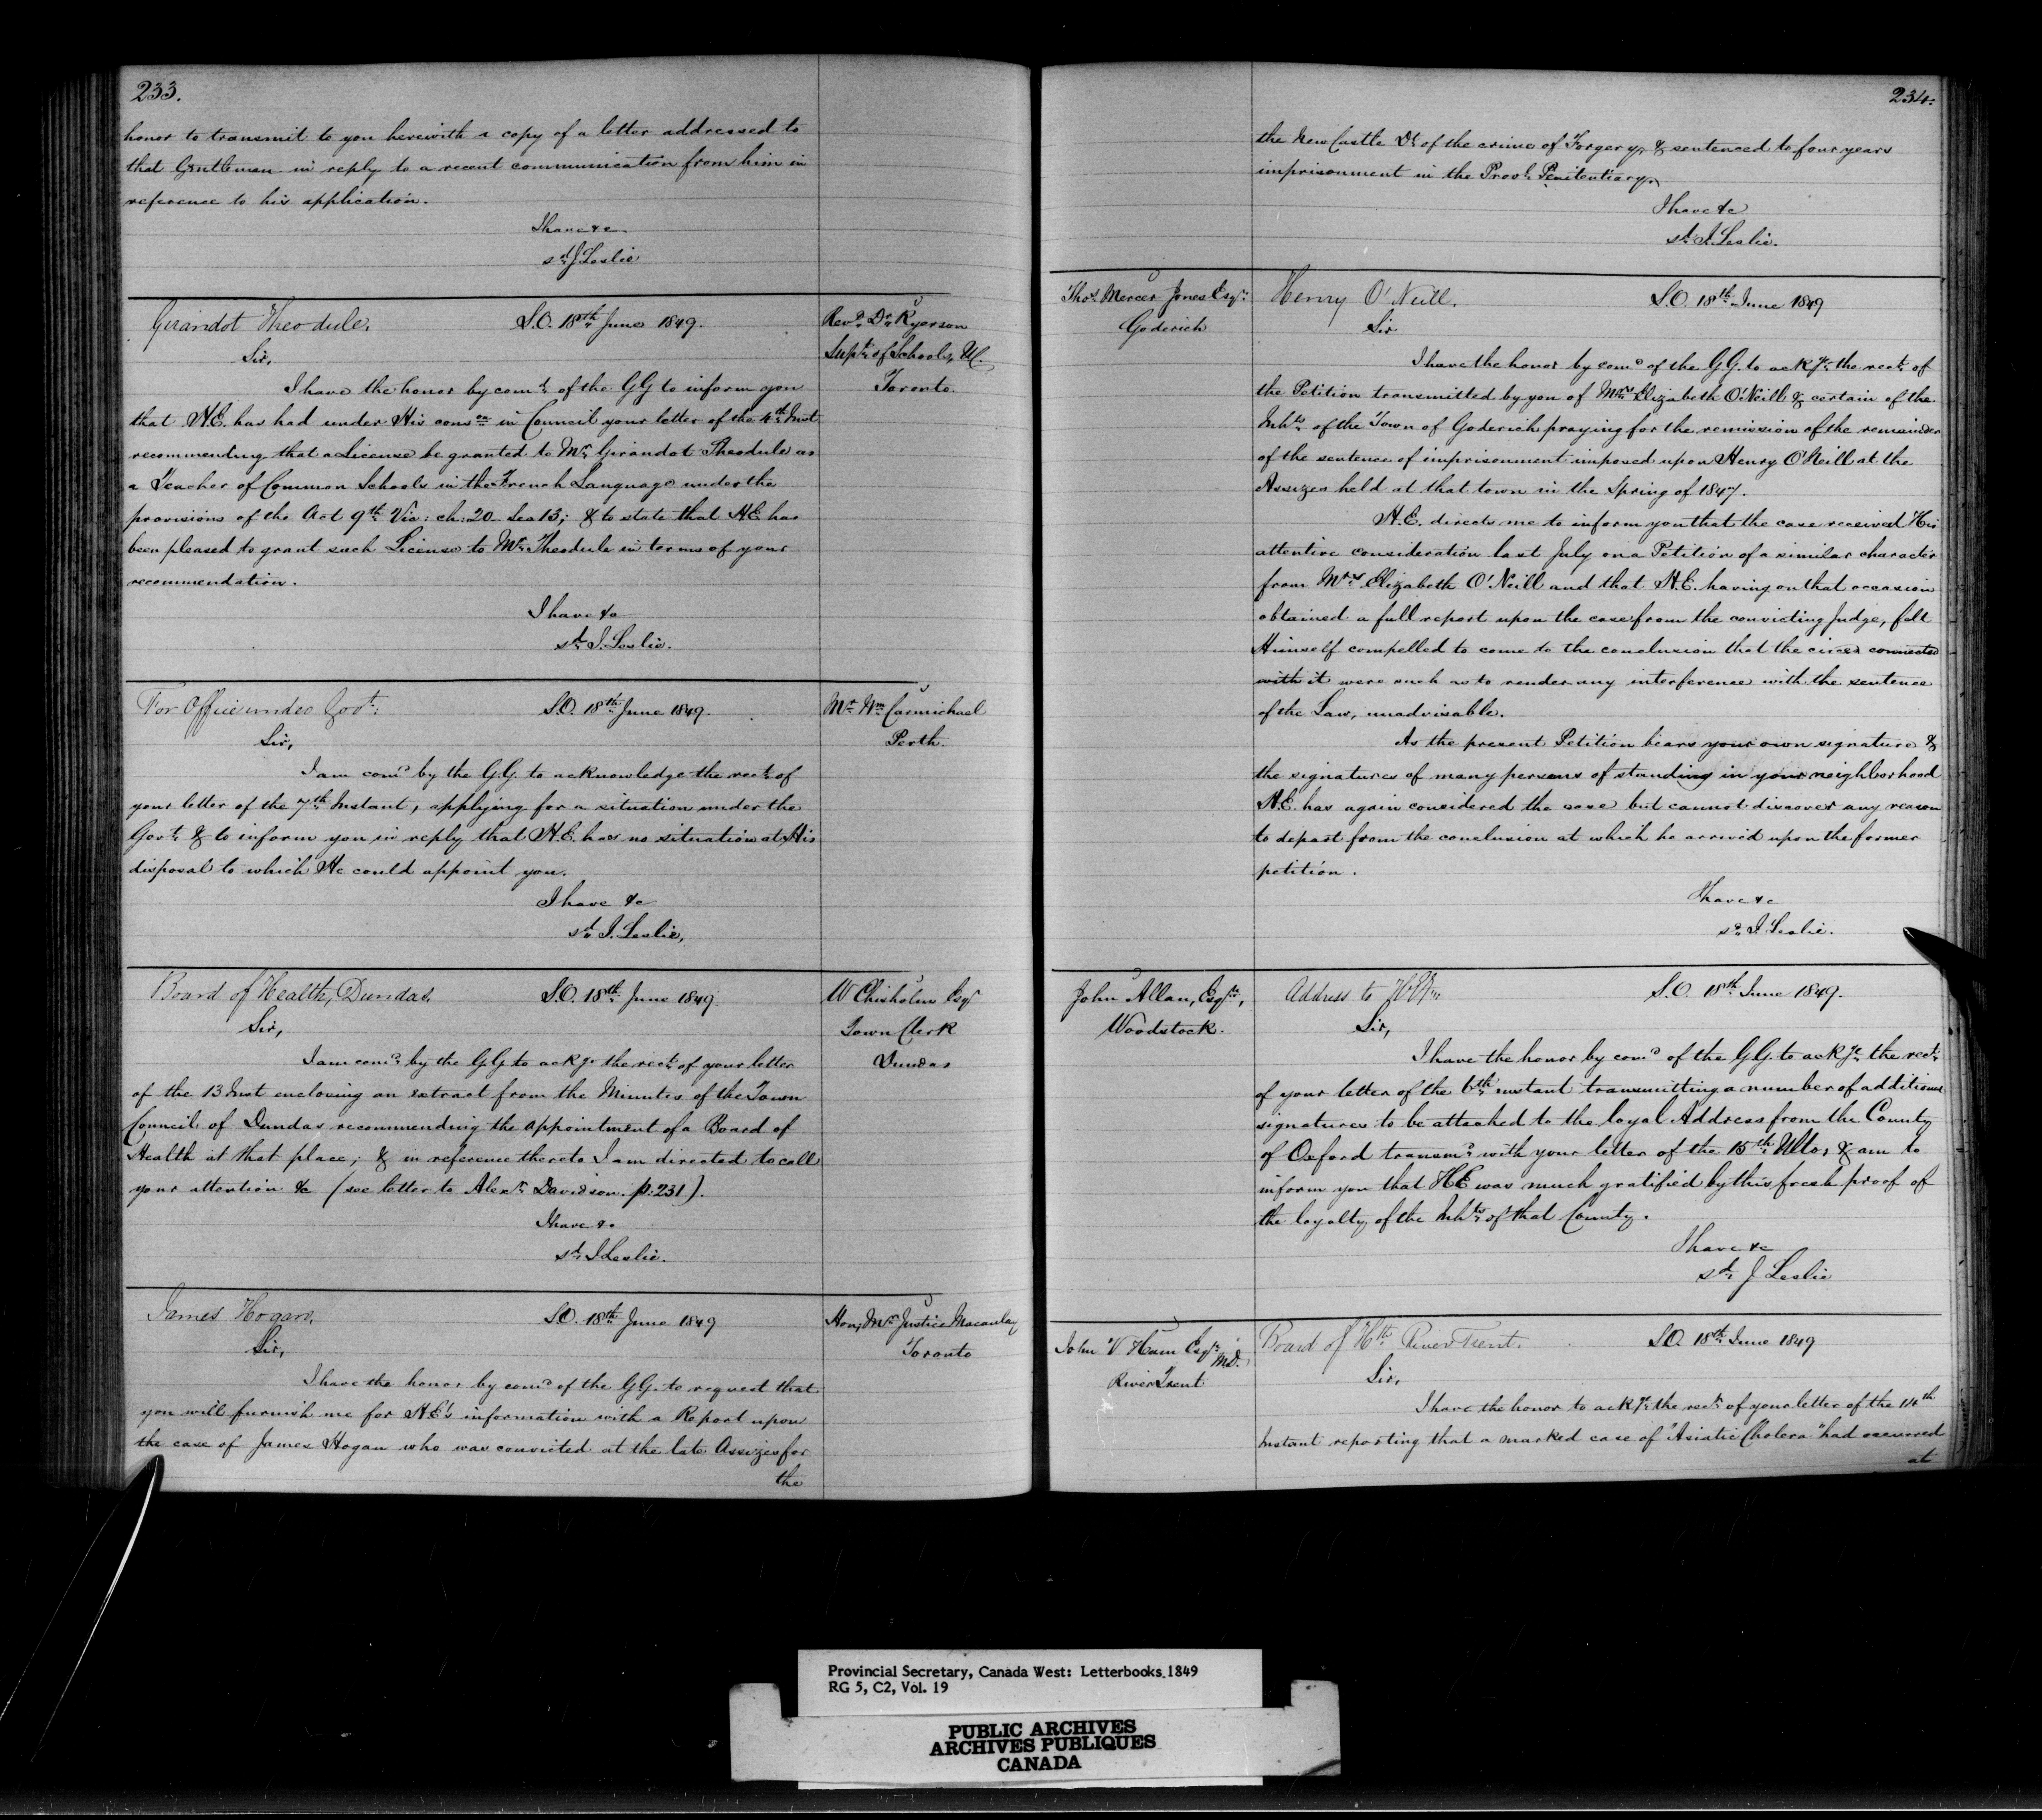 233.
honor to transmit to you herewith a copy of a letter addressed to
that Gentleman in reply to a recent communication from him in
reference to his application.
I have &c.
sd. J Leslie
Girardot Theodule.
S.O. 18th June 1849.
Revd. Dr. Ryerson
Supt. of Schools, UC.
Toronto.
Sir,
I have the honor by comd. of the GG to inform you
that H.E. has had under His conson in Council your letter of the 4th Inst
recommending that a License be granted to Mr. Girandot Theodule as
a Teacher of Common Schools in the French Language under the
provisions of the Act 9th Vic: ch: 20 - Sec 13; & to state that H.E. has
been pleased to grant such License to Mr. Theodule in terms of your
recommendation.
I have &c
sd. J. Leslie.
For Office under Govt.
S.O. 18th June 1849.
Mr. Wm. Carmichael
Perth.
Sir,
I am comd by the G.G. to acknowledge the rect. of
your letter of the 7th Instant, applying for a situation under the
Govt. & to inform you in reply that H.E. has no situation at His
disposal to which He could appoint you.
I have &c
sd. J. Leslie,
Board of Health, Dundas.
S.O. 18th June 1849.
W Chisholm Esqr
Town Clerk
Dundas
Sir,
I am comd. by the G.G to ackge the rect. of your letter
of the 13 Inst enclosing an extract from the Minutes of the Town
Council of Dundas recommending the appointment of a Board of
Health at that place; & in reference thereto I am directed to call
your attention &c (see letter to Alexr. Davidson. p. 231).
I have &c
sd. J Leslie.
James Hogan.
S.O. 18th June 1849
Hon. Mr. Justice Macaulay
Toronto
Sir,
I have the honor by comd of the GG. to request that
you will furnish me for H.E's information with a Report upon
the case of James Hogan who was convicted at the late Assizes for
the
234.
the New Castle Dt. of the crime of Forgery, & sentenced to four years
imprisonment in the Provl. Penitentiary.
I have &c
sd. J. Leslie.
Thos. Mercer Jones Esqr.
Goderich
Henry O'Neill.
S.O. 18th June 1849
Sir
I have the honor by comd of the G.G. to ackge. the rect. of
the Petition transmitted by you of Mrs. Elizabeth O'Neill & certain of the
Inhts. of the Town of Goderich praying for the remission of the remainder
of the sentence of imprisonment imposed upon Henry O'Neill at the
Assizes held at that town in the Spring of 1847.
H.E. directs me to inform you that the case received His
attentive consideration last July on a Petition of a similar character
from Mrs. Elizabeth O'Neill and that H.E. having on that occasion
obtained a full report upon the case from the convicting Judge, felt
Himself compelled to come to the conclusion that the circes connected
with it were such as to render any interference with the sentence
of the Law, unadvisable.
As the present Petition bears your own signature &
the signatures of many persons of standing in your neighborhood
H.E. has again considered the case but cannot discover any reason
to depart from the conclusion at which he arrived upon the former
petition.
I have &c
sd. J Leslie.
John Allan, Esqre.,
Woodstock.
Address to
S.O. 18th June 1849.
Sir,
I have the honor by comd of the G.G. to ackge. the rect.
of your letter of the 6th instant transmitting a number of additional
signatures to be attached to the loyal Address from the County
of Oxford transmd. with your letter of the 15th Ulto, & am to
inform you that HE was much gratified by this fresh proof of
the loyalty of the Inhts. of that County.
I have &c
sd. J Leslie
John V Ham Esqr. M.D.
River Trent
Board of Hth. River Trent.
S.O. 18th June 1849
Sir,
I have the honor to ackge. the rect. of your letter of the 14th
Instant reporting that a marked case of "Asiatic Cholera" had occurred
at
Provincial Secretary, Canada West: Letterbooks 1849
RG 5, C2, Vol. 19
PUBLIC ARCHIVES
ARCHIVES PUBLIQUES
CANADA